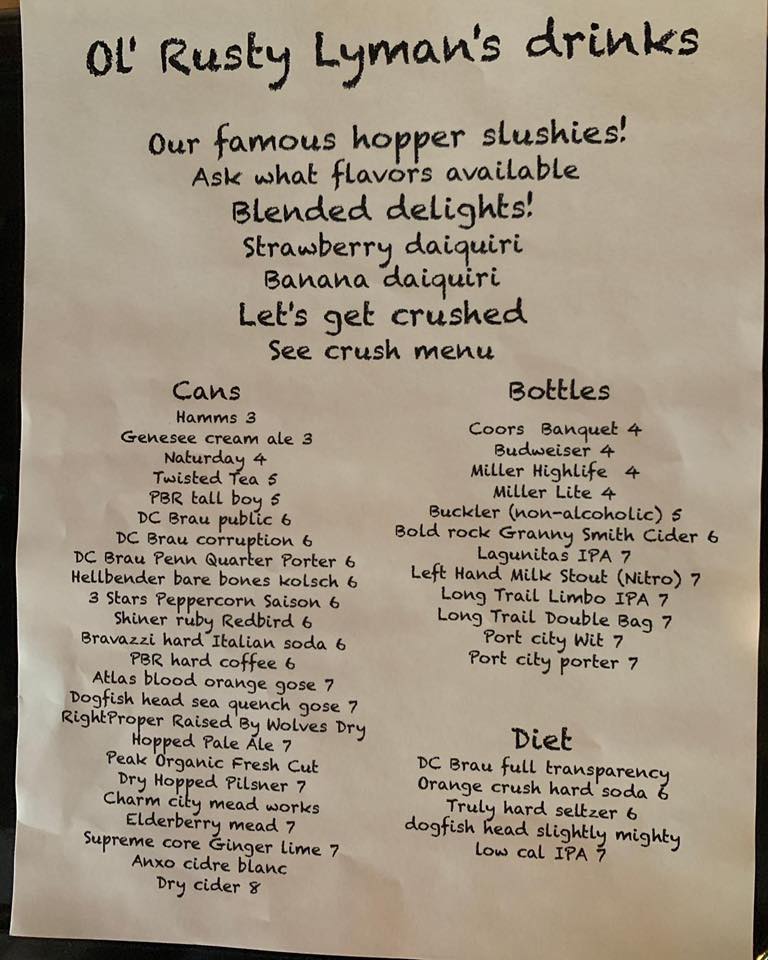 Ol' Rusty Lyman's drinks
Our famous hopper slushies!
Ask what flavors available
Blended delights!
Strawberry daiquiri
Banana daiquiri
Let's get crushed
See crush menu
Cans
Hamms 3
Genesee cream ale 3
Naturday 4
Twisted Tea 5
PBR tall boy 5
DC Brau public 6
DC Brau corruption 6
DC Brau Penn Quarter Porter 6
Hellbender bare bones kolsch 6
3 Stars Peppercorn Saison 6
Shiner ruby Redbird 6
Bravazzi hard Italian soda 6
PBR hard coffee 6
Atlas blood orange gose 7
Dogfish head sea quench gose 7
RightProper Raised By Wolves Dry
Hopped Pale Ale 7
Peak Organic Fresh Cut
Dry Hopped Pilsner 7
Charm city mead works
Elderberry mead 7
Supreme core Ginger lime 7
Anxo cidre blanc
Dry cider 8
Bottles
Coors Banquet 4
Budweiser 4
Miller Highlife 4
Miller Lite 4
Buckler (non-alcoholic) 5
Bold rock Granny Smith Cider 6
Lagunitas IPA 7
Left Hand Milk Stout (Nitro) 7
Long Trail Limbo IPA 7
Long Trail Double Bag 7
Port city Wit 7
Port city porter 7
Diet
DC Brau full transparency
Orange crush hard soda 6
Truly hard seltzer 6
dogfish head slightly mighty
low cal IPA 7